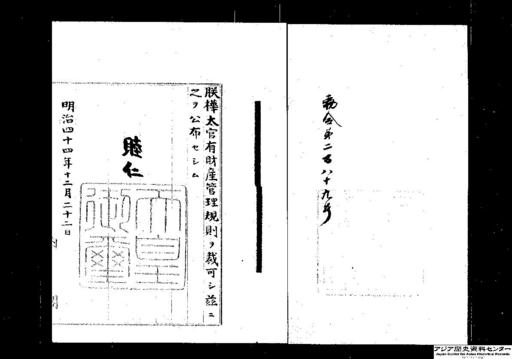 勅令第二百八十九号
朕樺太官有財産管理規則ヲ裁可シ茲ニ
之ヲ公布セシム
睦仁
天皇御璽
明治四十四年十二月二十二日
アジア歴史資料センター
Japan Center for Asian Historical Records